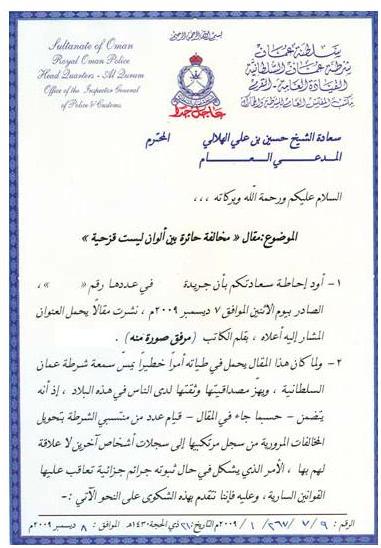 بسم الله الرحمن الرحيم
Sultanate of Oman
Royal Oman Police
Head Quarters - Al Qurum
Office of the Inspector General
of Police & Customs
سلطنة عمان
شرطة عمان السلطانية
القيادة العامة - القرم
مكتب المفتش العام للشرطة والجمارك
عاجل جدا
سعادة الشيخ حسين بن علي الهلالي المحترم
المدعي العام
السلام عليكم ورحمة الله وبركاته ,,,
الموضوع: مقال « مخالفة حائرة بين ألوان ليست قزحية »
١ - أود إحاطة سعادتكم بأن جريدة في عددها رقم « »،
الصادر يوم الاثنين الموافق ٧ ديسمبر ٢٠٠٩م ، نشرت مقالاً يحمل العنوان
المشار إليه أعلاه ، بقلم الكاتب (مرفق صورة منه) .
٢ - ولما كان هذا المقال يحمل في طياته أمراً خطيراً يمسّ سمعة شرطة عمان
السلطانية ، ويهزّ مصداقيتها وثقتها لدى الناس في هذه البلاد ، إذ أنه
يتضمن - حسبما جاء في المقال - قيام عدد من منتسبي الشرطة بتحويل
المخالفات المرورية من سجل مرتكبها إلى سجلات أشخاص آخرين لا علاقة
لهم بها ، الأمر الذي يشكل في حال ثبوته جرائم جزائية تعاقب عليها
القوانين السارية ، وعليه فإننا نتقدم بهذه الشكوى على النحو الآتي :-
الرقم : ٩ / ٧ / ٢٦٧ / ١ / ٢٠٠٩م التاريخ: ٢١ ذي الحجة ١٤٣٠هـ الموافق : ٨ ديسمبر ٢٠٠٩م